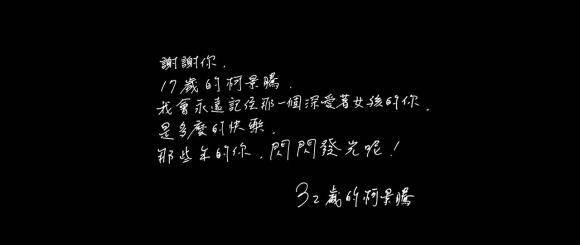 謝謝你．
17歲的柯景騰．
我會永遠記住那一個深愛著女孩的你．
是多麼的快樂．
那些年的你．閃閃發光呢！
32歲的柯景騰